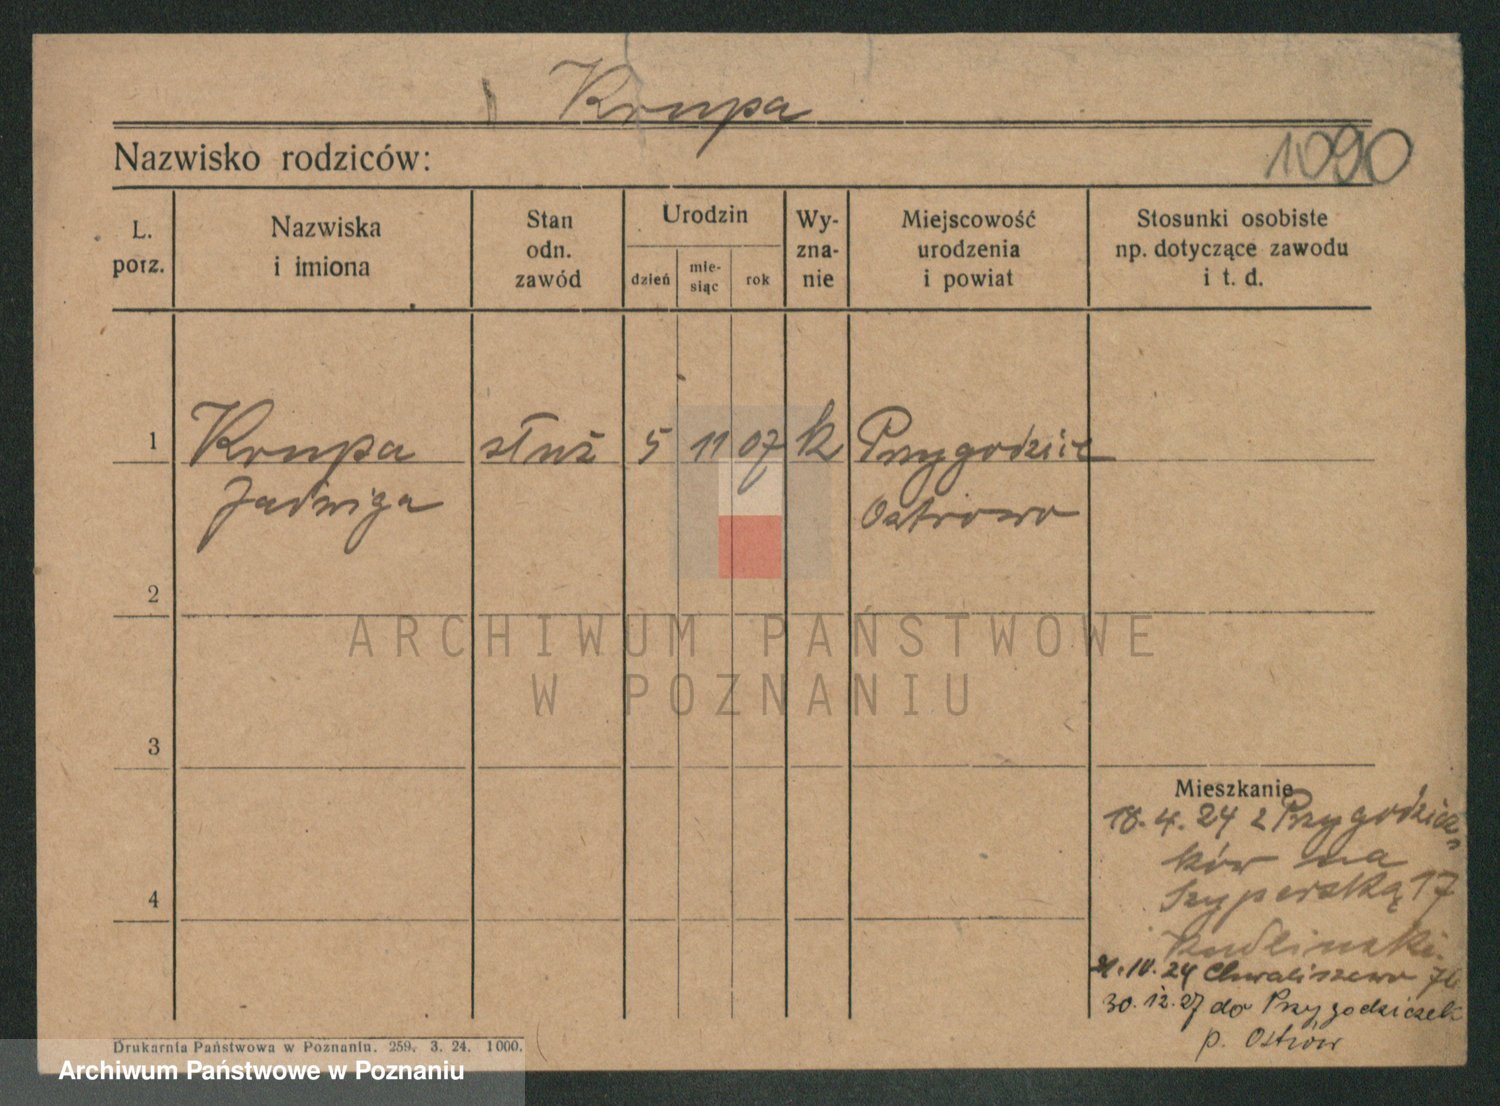 Krupa
Nazwisko rodziców:
1090
L. porz.
Nazwiska i imiona
Stan odn. zawód
Urodzin
dzień
mie-
siąc
rok
Wy-
zna-
nie
Miejscowość
urodzenia
i powiat
Stosunki osobiste
np. dotyczące zawodu
i t. d.
1 Krupa służ 5 11 07 k Przygodzice
Jadwiga Ostrowo
2
ARCHIWUM PAŃSTWOWE
W POZNANIU
3
Mieszkanie
18. 4. 24 z Przygodzicz-
ków na
4
Szyperską 17
21. 10. 24 Chwaliszewo
30. 12. 27 do Przygodziczek
p. Ostrów
Drukarnia Państwowa w Poznaniu. 259. 3. 24. 1000.
Archiwum Państwowe w Poznaniu